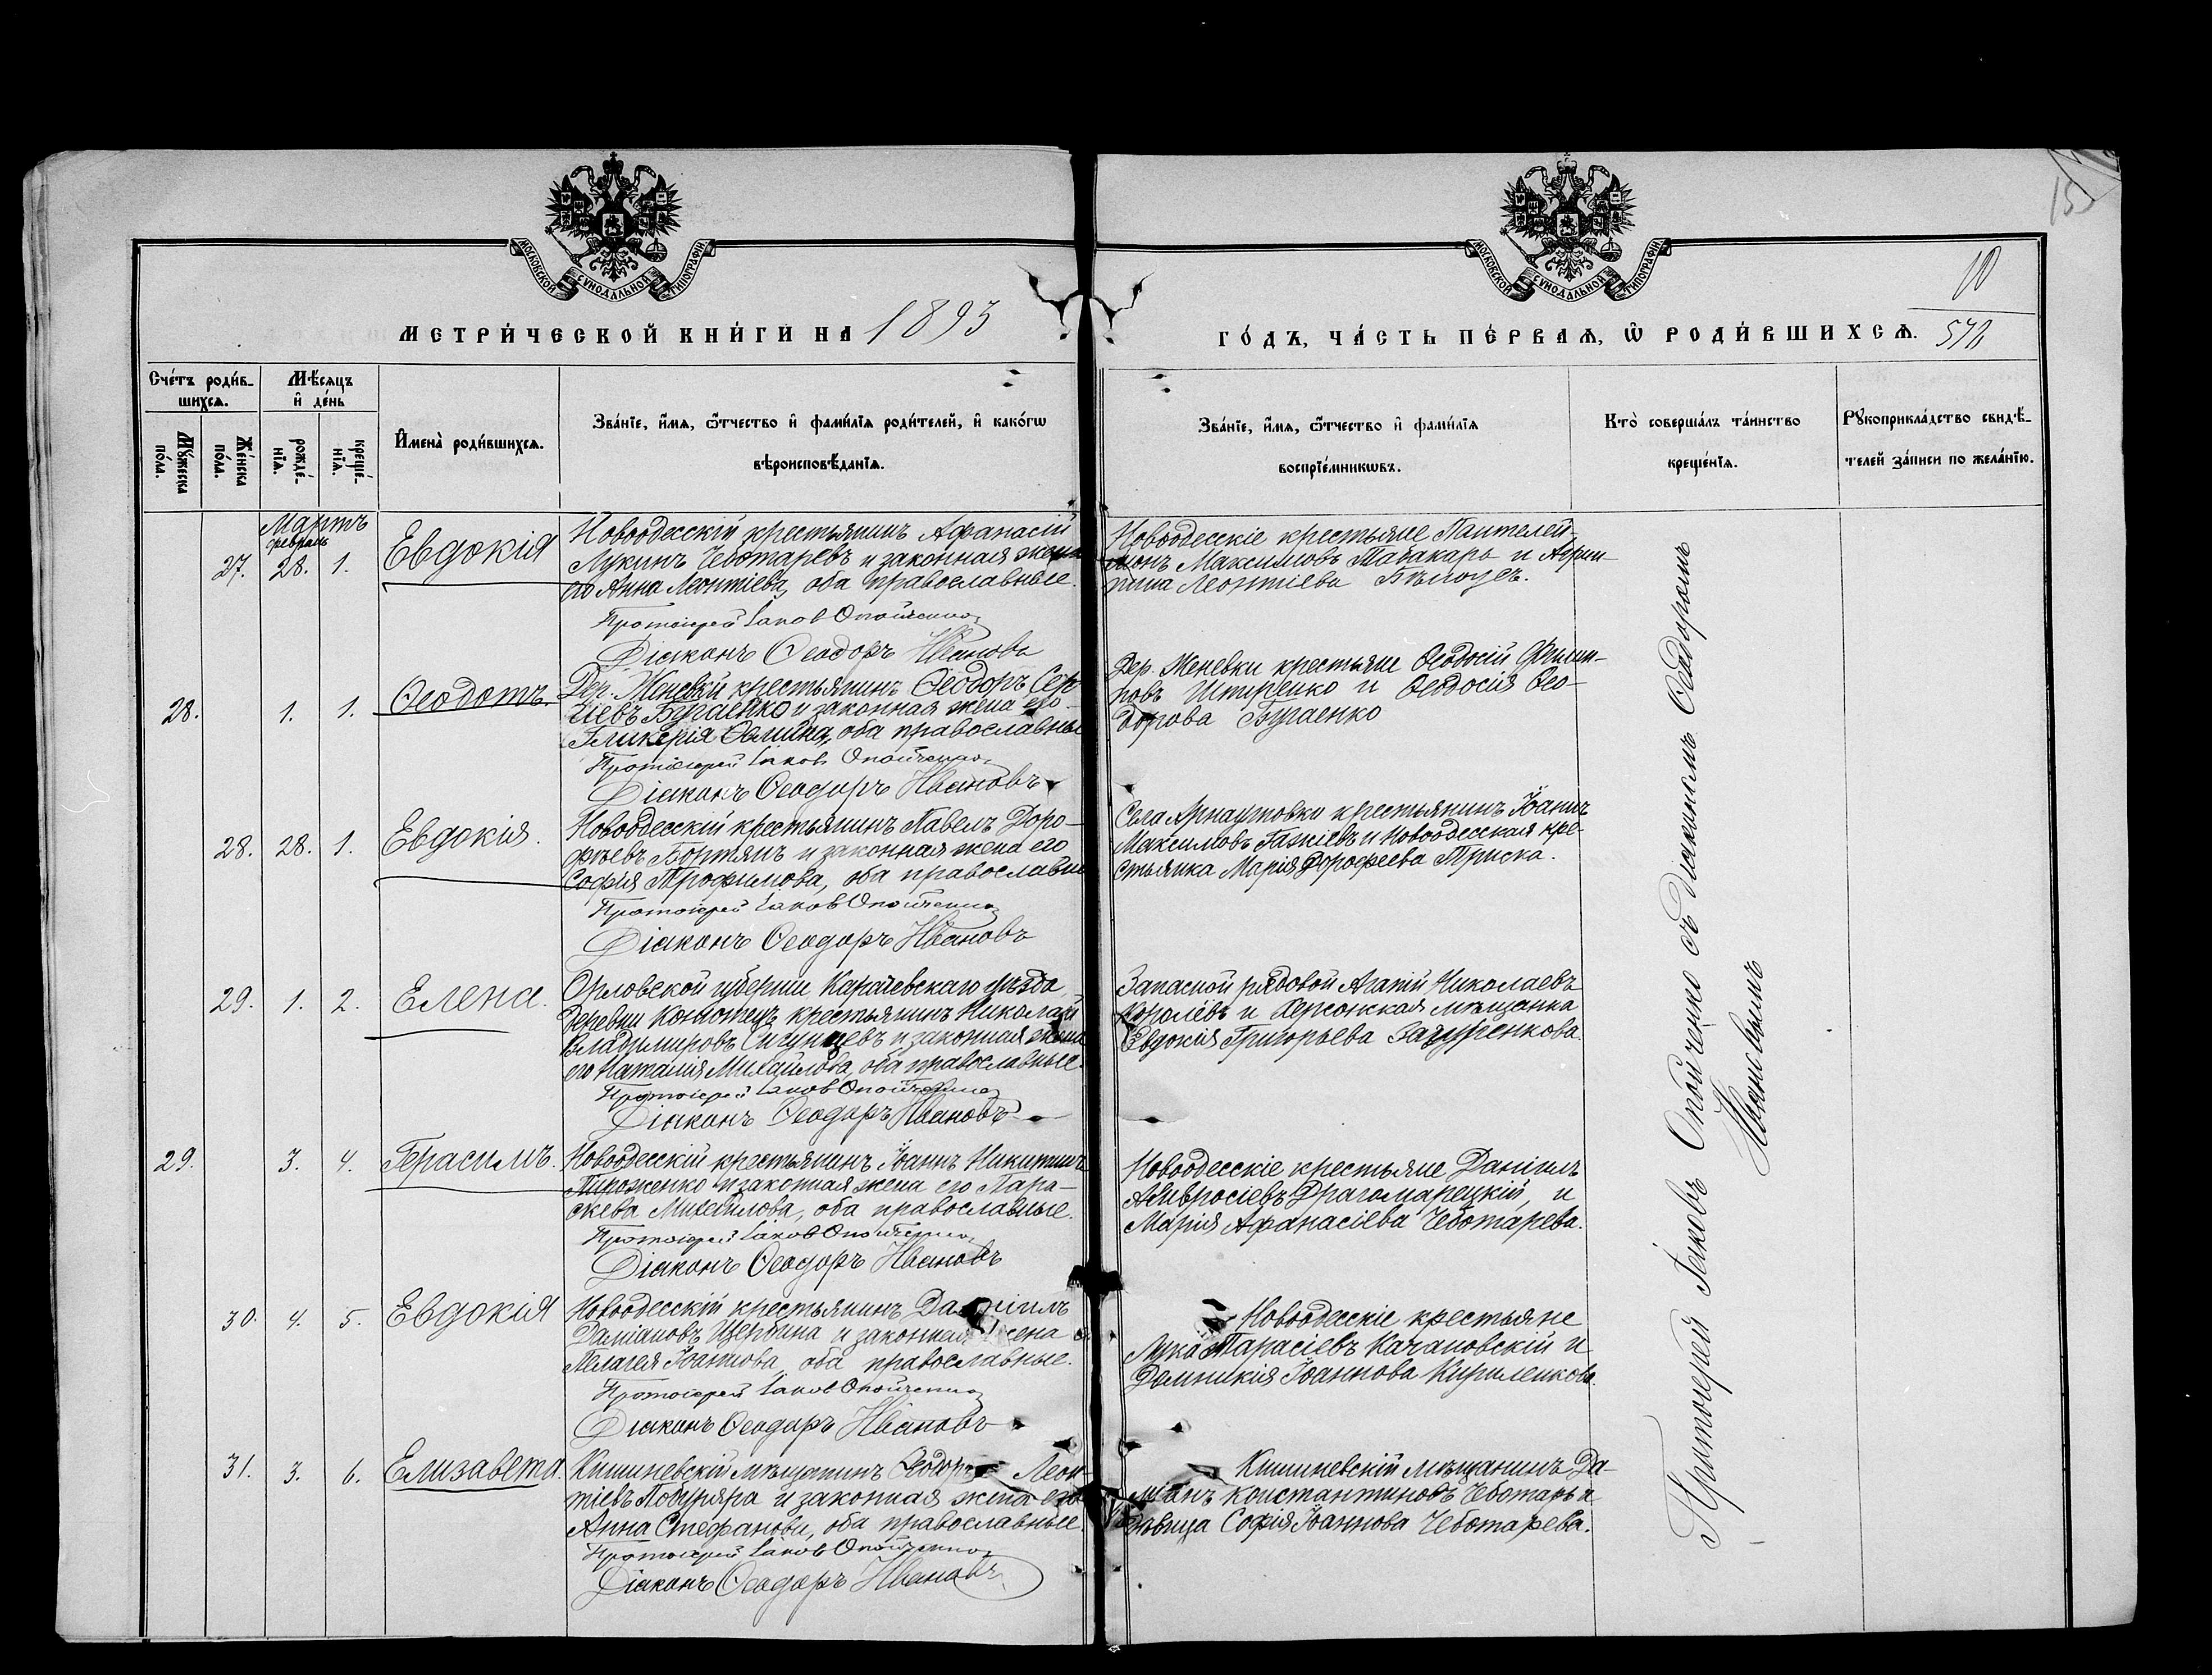 МОСКОВСКОЙ СѴНОДАЛЬНОЙ ТИПОГРАФІИ
МОСКОВСКОЙ СѴНОДАЛЬНОЙ ТИПОГРАФІИ
15
10
МЕТРИ́ЧЕСКОЙ КНИ́ГИ НА 1893
ГО́ДЪ, ЧА́СТЬ ПЕ́РВАѦ, Ѡ҆ РОДИ́ВШИХСѦ.
Сче́тъ роди́в-
шихсѧ.
Мꙋ́жеска по́ла.
Же́нска по́ла.
Мѣ́сѧцъ
и҆ де́нь
рожде́-нїѧ.
креще́-нїѧ.
И҆мена̀ роди́вшихсѧ.
Зва́нїе, и҆́мѧ, ѻ҆́тчество и҆ фами́лїѧ роди́телей, и҆ како́гѡ
вѣроисповѣ́данїѧ.
Зва́нїе, и҆́мѧ, ѻ҆́тчество и҆ фами́лїѧ
воспрїе́мникѡвъ.
Кто̀ соверша́лъ та́инство
креще́нїѧ.
Рꙋкоприкла́дство свидѣ́-
телей за́писи по жела́нїю.
Мартъ
февраль
27. 28. 1. Евдокія
Новоодесскій крестьянинъ Афанасій
Лукинъ Чеботаревъ и законная жена
его Анна Леонтіева, оба православные.
Протоіерей Іаковъ Опойченко
Діаконъ Ѳеодоръ Ивановъ
Новоодесскіе крестьяне Пантелей-
монъ Максимовъ Табакарь и Агрип-
пина Леонтіева Бѣлоусъ.
28. 1. 1. Ѳеодотъ.
Дер. Женевки крестьянинъ Ѳеодоръ Сер-
гіевъ Бугаенко и законная жена его
Гликерія, оба православны
Протоіерей Іаковъ Опойченко
Діаконъ Ѳеодоръ Ивановъ
Дер. Женевки крестьяне Ѳеодосій Филип-
повъ Штиренко и Ѳеодосія Ѳео-
дорова Бугаенко
28. 28. 1. Евдокія.
Новоодесскій крестьянинъ Павелъ Доро-
фѣевъ Бортянъ и законная жена его
Софія Трофимова, оба православны
Протоіерей Іаковъ Опойченко
Діаконъ Ѳеодоръ Ивановъ
Села Арнаутовки крестьянинъ Іоаннъ
Максимовъ и Новоодесская кре-
стьянка Марія Дорофеева Триска.
29. 1. 2. Елена.
Орловской губерніи Карачевскаго уѣзда
деревни крестьянинъ Николай
Владимировъ и законная жена
его Наталія Михайлова, оба православные.
Протоіерей Іаковъ Опойченко
Діаконъ Ѳеодоръ Ивановъ
Запасной рядовой Агапій Николаевъ
Королевъ и Херсонская мѣщанка
Евдокія Григорьева.
29. 3. 4. Герасимъ.
Новоодесскій крестьянинъ Іоаннъ Никитинъ
Пироженко и законная жена его Пара-
скева Михайлова, оба православные.
Протоіерей Іаковъ Опойченко
Діаконъ Ѳеодоръ Ивановъ
Новоодесскіе крестьяне Даніилъ
Амвросіевъ Драгомарецкій, и
Марія Афанасіева Чеботарева.
30. 4. 5. Евдокія
Новоодесскій крестьянинъ Даніилъ
Даміановъ Щербина и законная жена
Пелагея Іоаннова оба православные.
Протоіерей Іаковъ Опойченко
Діаконъ Ѳеодоръ Ивановъ
Новоодесскіе крестьяне
Лука Тарасіевъ Качановскій и
Домникія Іоаннова Кириленкова.
31. 3. 6. Елизавета.
Кишиневскій мѣщанинъ Ѳеодоръ Леон-
тіевъ и законная жена его
Анна Стефанова, оба православные.
Протоіерей Іаковъ Опойченко
Діаконъ Ѳеодоръ Ивановъ
Кишиневскій мѣщанинъ Да-
міанъ Константиновъ Чеботарь и
дѣвица Софія Іоаннова Чеботарева.
Протоіерей Іаковъ Опойченко съ діакономъ Ѳеодоромъ
Ивановымъ